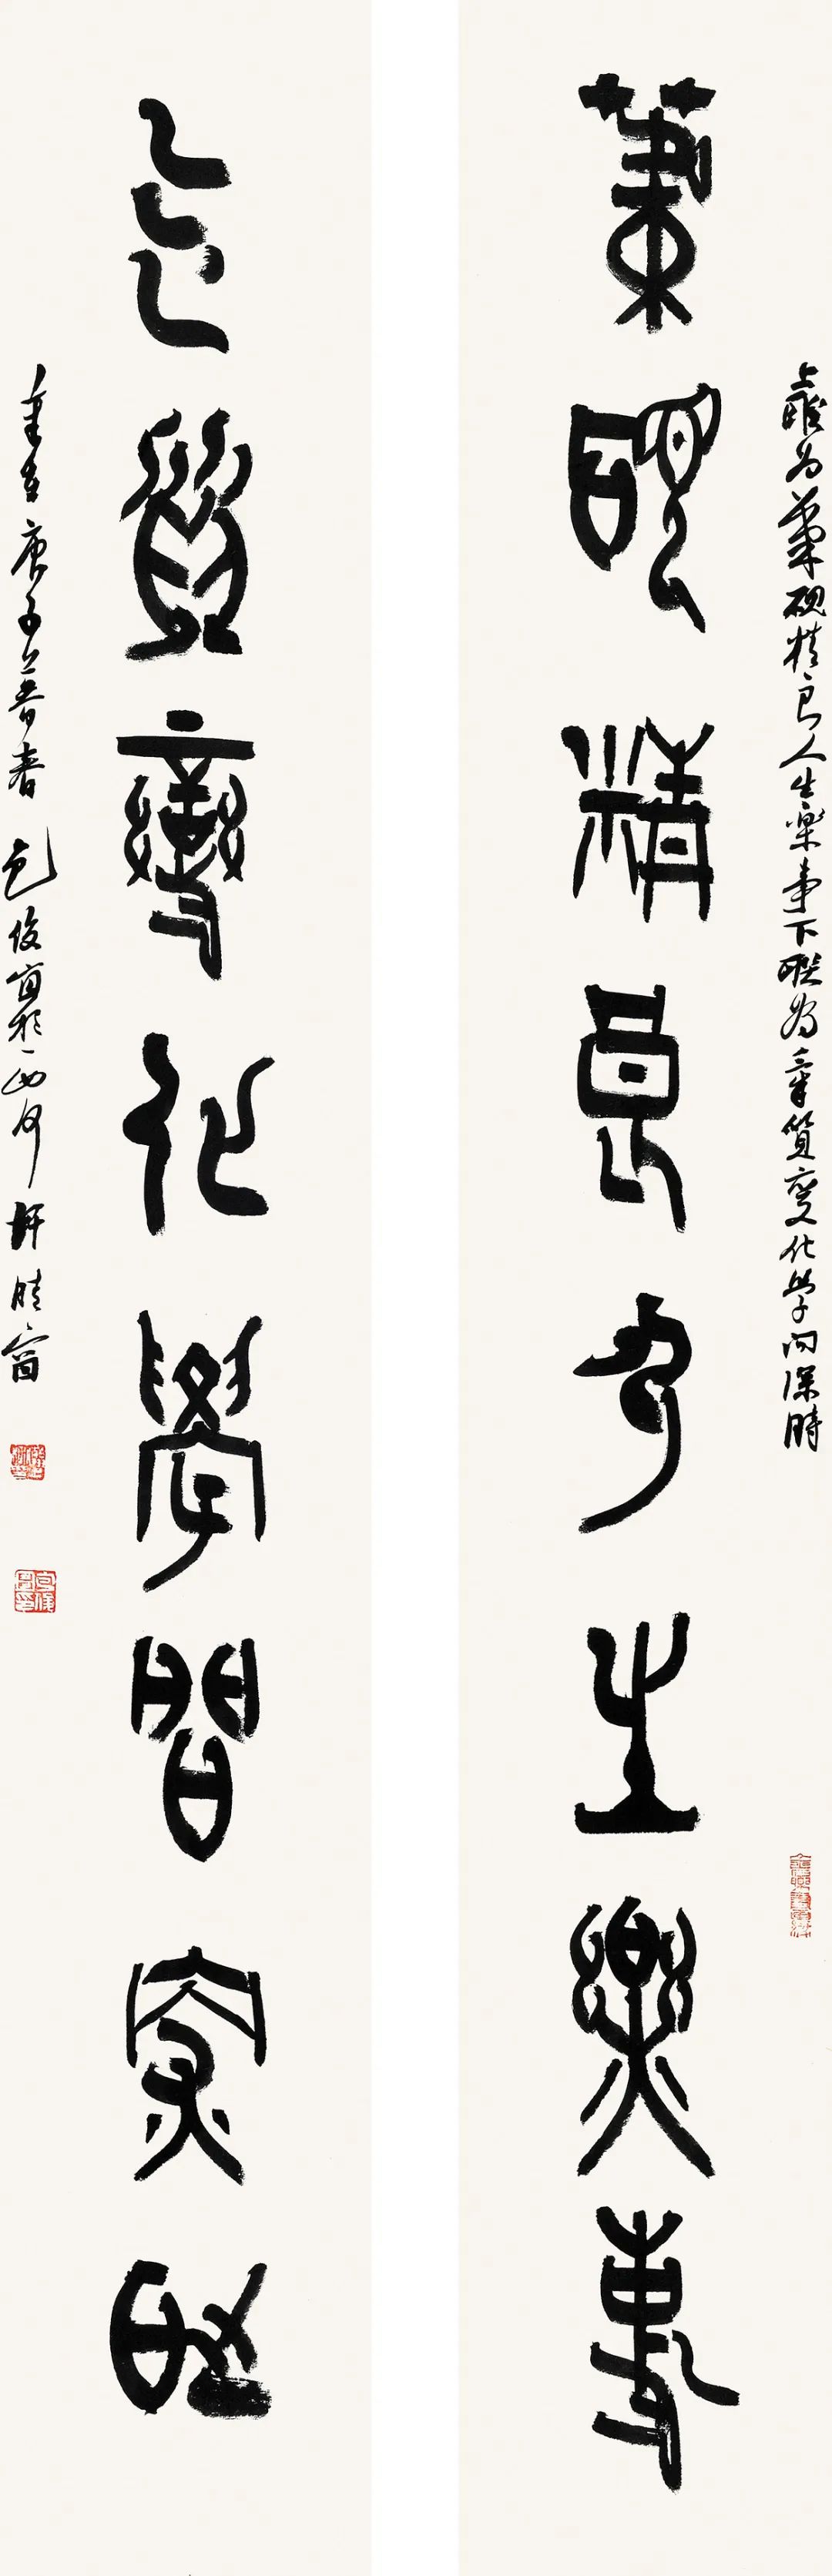 上聯為筆硯精良人生樂事下聯為氣質變化學問深時
筆硯精良人生樂事
气質變化學問深時
在庚子暮春包俊宜於西河軒晴窗